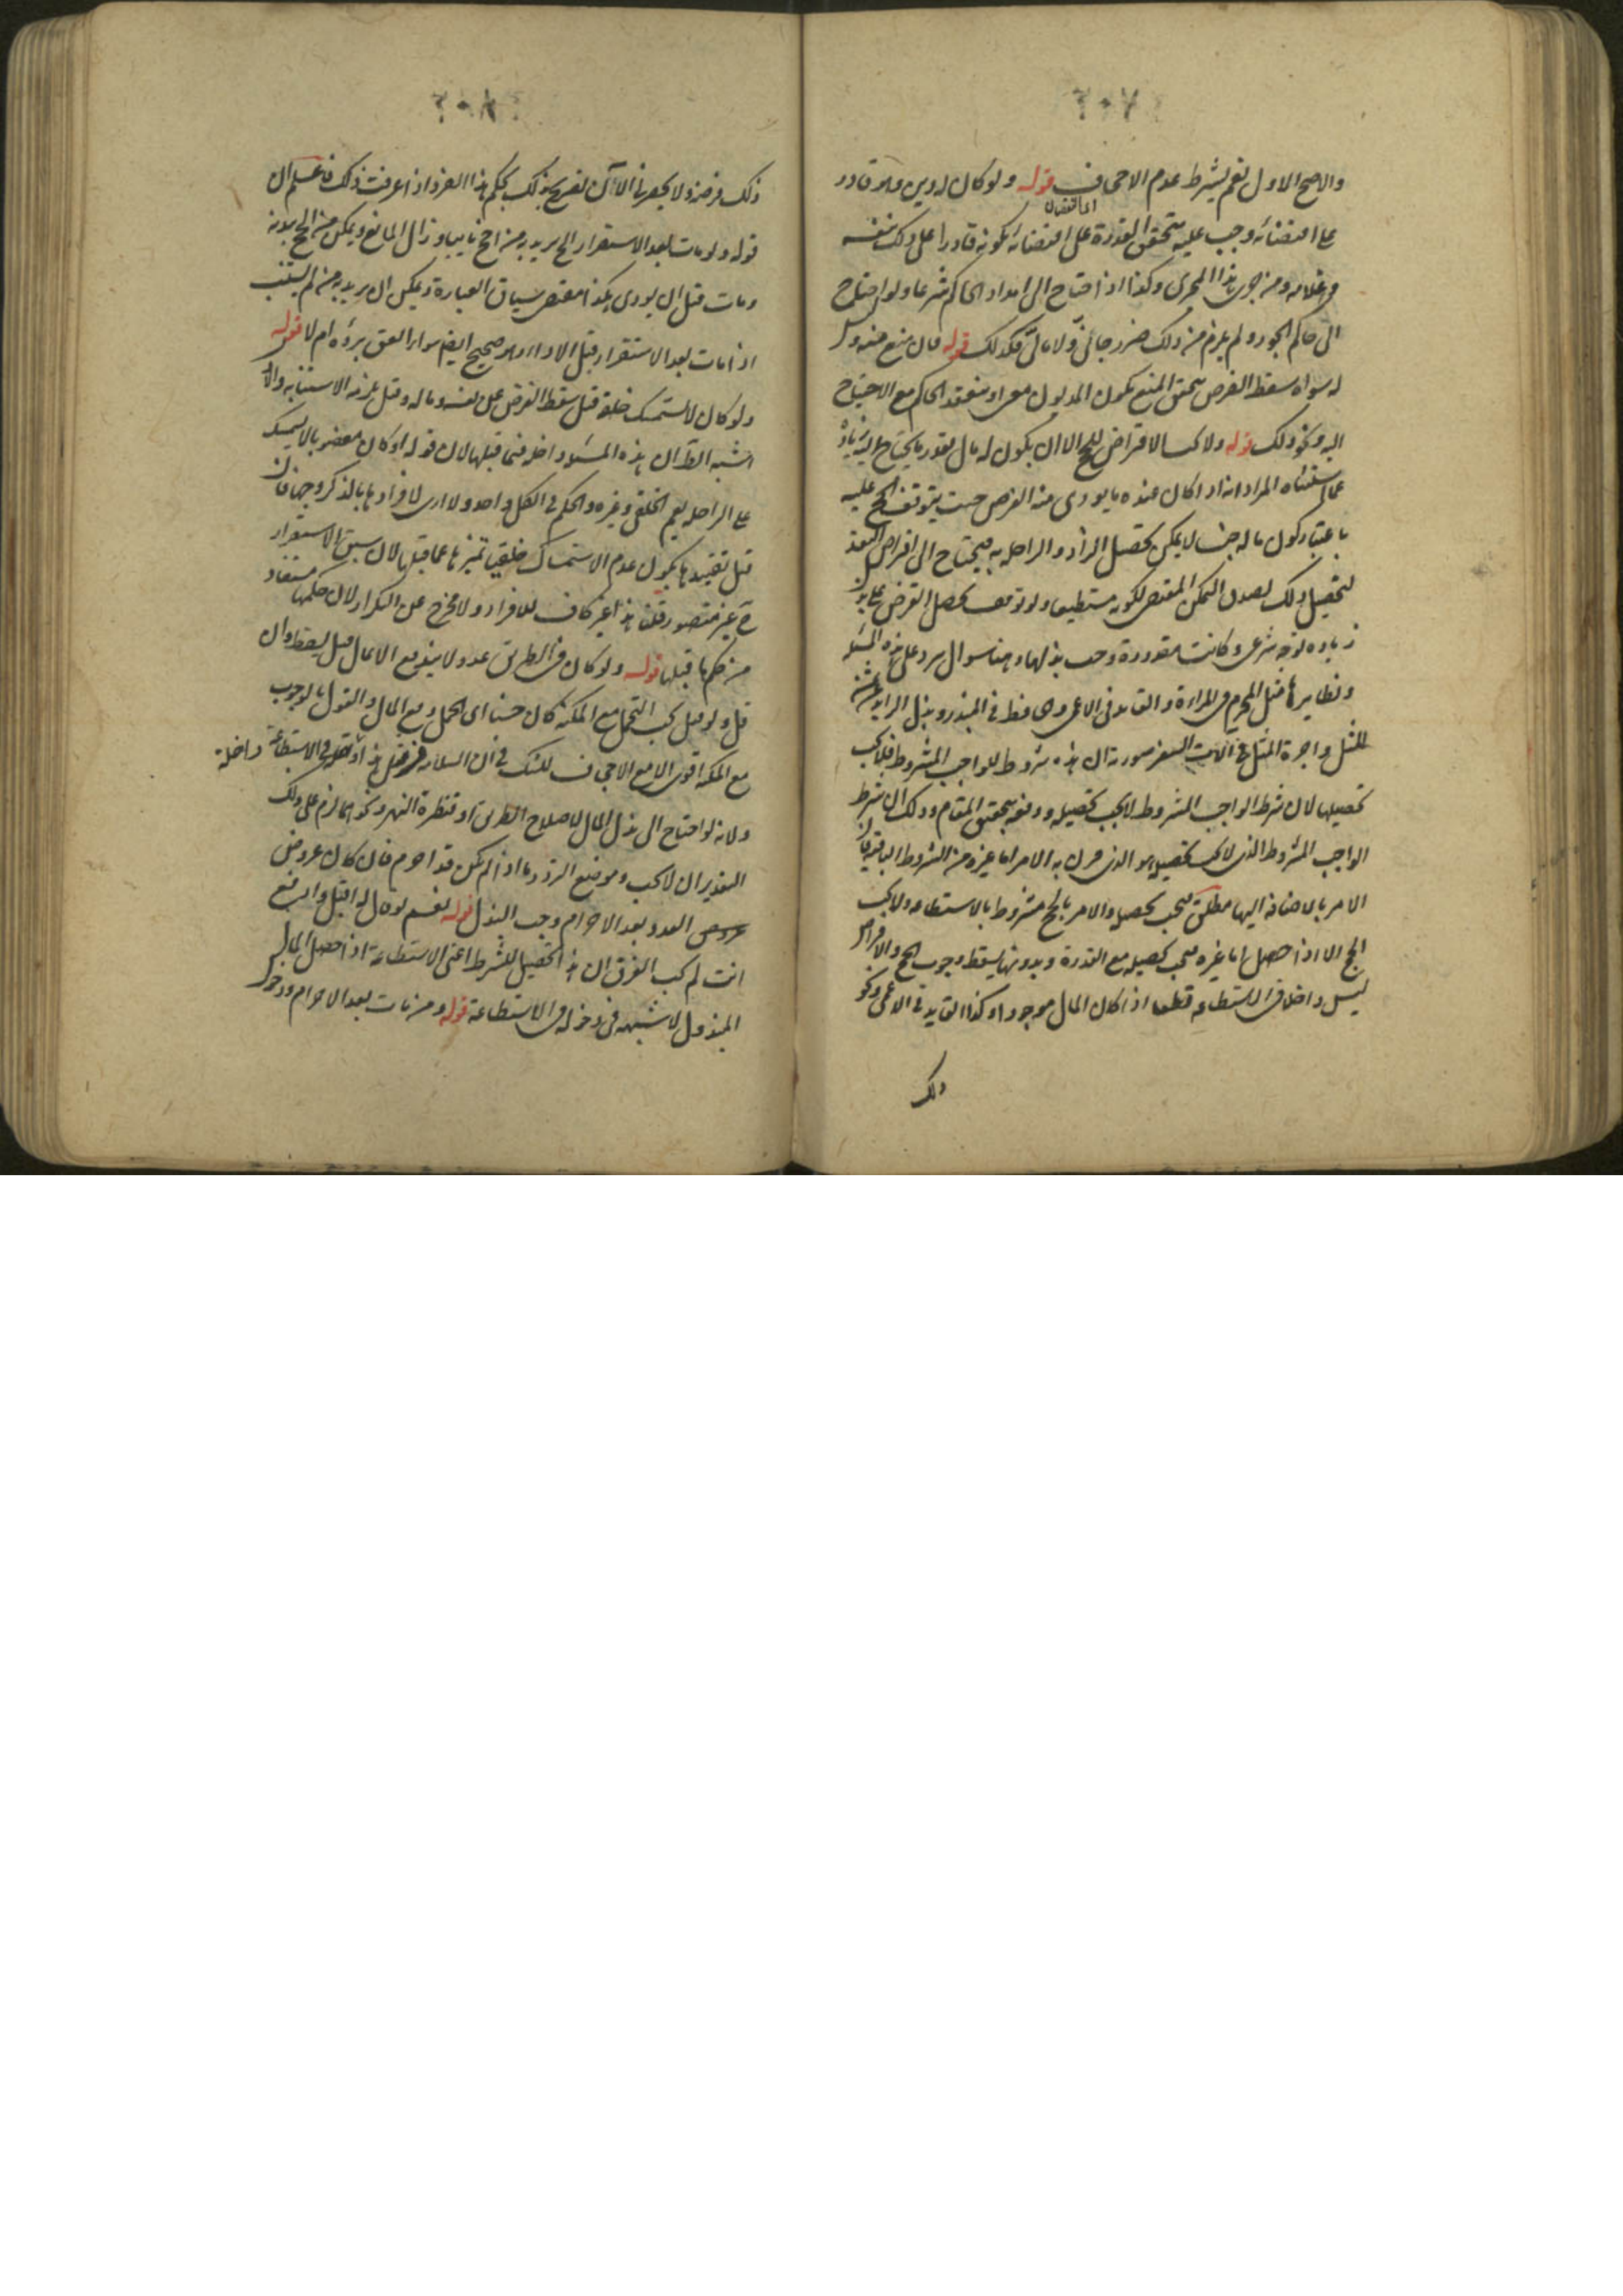 ٢٠٧
والاصح الاول نعم يشترط عدم الاجحاف قوله ولو كان له دين وهو قادر
على اقتضائه وجب عليه يتحقق القدرة على اقتضائه بكونه قادرا على ذلك بنفسه
وغلامه ومن جرى هذا المجرى وكذا اذا احتاج الى امداد الحاكم شرعا ولو احتاج
الى حاكم الجور ولم يلزم من ذلك ضرر جانى ولا مالى فكذلك قوله فان منع منه وليس
له سواه سقط الفرض يتحقق المنع بكون المديون معسرا وبفقد الحاكم مع الاحتياج
اليه ونحو ذلك قوله ولا يجب الاقتراض للحج الا ان يكون له مال بقدر ما يحتاج اليه زيادة
عما استثناه المراد انه اذا كان عنده ما يودى منه القرض حيث يتوقف الحج عليه
باعتبار كون ماله بحيث لا يمكن تحصيل الزاد والراحله به فيحتاج الى اقتراض النقد
لتحصيل ذلك لصدق التمكن المقتضى لكونه مستطيعا ولو توقف تحصيل القرض على بذل
زياده لوجه شرعى وكانت مقدورة وجب بذلها وهنا سوال يرد على هذه المسئله
ونظايرها مثل المحرم فى المراة والقايد فى الاعمى
للمثل واجرة المثل فى الآت السفر صورته ان هذه شروط للواجب المشروط فلا يجب
تحصيلها لان شرط الواجب المشروط لا يجب تحصيله ودفعه بتحقيق المقام وذلك ان شرط
الواجب المشروط الذى لا يجب تحصيله هو الذى قرن به الامر اما غيره من الشروط الباقيه فان
الامر بالاضافة اليها مطلق فيجب تحصيله والامر بالحج مشروط بالاستطاعه ولا يجب
الحج الا اذا حصل اما غيره فيجب تحصيله مع القدرة وبدونها يسقط وجوب الحج والاقتراض
ليس داخلا فى الاستطاعه قطعا اذا كان المال موجودا وكذا القايد فى الاعمى ونحو
ذلك
٢٠٨
ذلك فرضه ولا يحضرنا الآن تصريح بذلك بحكم هذا الفرد اذا عرفت ذلك فاعلم ان
قوله ولو مات بعد الاستقرار الخ يريد به من احج نايبا وزال المانع ويمكن من الحج ببدنه
ومات قبل ان يودى هكذا مقتضى سياق العبارة ويمكن ان يريد به من لم يستنب
اذا مات بعد الاستقرار قبل الاداء وهو صحيح ايضا سواء اتفق برؤه ام لا قوله
ولو كان لا يستمسك خلقة قيل سقط الفرض عن نفسه وماله وقيل يلزمه الاستنابه والاول
اشبه الظ ان هذه المسئله داخله فيما قبلها لان قوله او كان معضوبا لا يستمسك
على الراحله يعم الخلقى وغيره والحكم فى الكل واحد ولا ارى لافرادها بالذكر وجها فان
قيل تقييدها بكون عدم الاستمساك خلقيا تميزها عما قبلها لان سبق الاستقرار
ح غير متصور قلنا هذا غير كاف للافراد ولا مخرج عن التكرار لان حكمها مستفاد
من حكم ما قبلها قوله ولو كان فى الطريق عدو لا يندفع الا بمال قيل يسقط وان
قل ولو قيل يجب التحمل مع المكنة كان حسنا اى تحمل دفع المال والقول بالوجوب
مع المكنه اقوى الا مع الاجحاف للشك فى ان السلامه من مثل هذا داخلة فى الاستطاعة
ولانه لو احتاج الى بذل المال لاصلاح الطريق او قنطرة النهر ونحوهما لزم على ذلك
التقدير ان لا يجب وموضع التردد ما اذا لم يكن قد احرم فان كان عروض
العدو بعد الاحرام وجب البذل قوله نعم لو قال له اقبل وادفع
انت لم يجب الفرق ان هذا تحصيل للشرط اعنى الاستطاعة اذا حصل المال
المبذول لا شبهه فى دخوله فى الاستطاعة قوله ومن مات بعد الاحرام ودخول